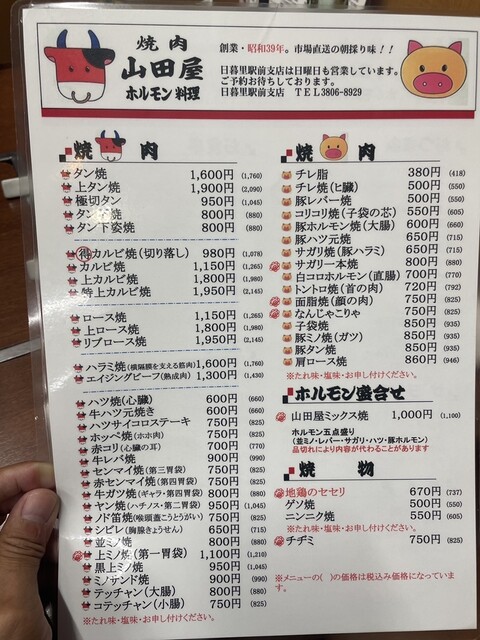 焼肉
山田屋
ホルモン料理
創業・昭和39年。市場直送の朝採り味！！
日暮里駅前支店は日曜日も営業しています。
ご予約お待ちしております。
日暮里駅前支店 TEL3806-8929
焼 肉
タン焼 1,600円 (1,760)
上タン焼 1,900円 (2,090)
極切タン 950円 (1,045)
800円 (880)
タン下姿焼 800円 (880)
得カルビ焼(切り落し) 980円 (1,078)
カルビ焼 1,150円 (1,265)
上カルビ焼 1,800円 (1,980)
特上カルビ焼 1,950円 (2,145)
ロース焼 1,150円 (1,265)
上ロース焼 1,800円 (1,980)
リブロース焼 1,950円 (2,145)
ハラミ焼(横隔膜を支える筋肉) 1,600円 (1,760)
エイジングビーフ(熟成肉) 1,300円 (1,430)
ハツ焼(心臓) 600円 (660)
牛ハツ元焼き 600円 (660)
ハツサイコロステーキ 750円 (825)
ホッペ焼(ホホ肉) 750円 (825)
赤コリ(心臓の耳) 700円 (770)
牛レバ焼 900円 (990)
センマイ焼(第三胃袋) 750円 (825)
赤センマイ焼(第四胃袋) 750円 (825)
牛ガツ焼(ギャラ・第四胃袋) 800円 (880)
ヤン焼(ハチノス・第二胃袋) 950円 (1,045)
ノド笛焼(喉頭蓋こうとうがい) 750円 (825)
シビレ(胸腺きょうせん) 650円 (715)
並ミノ焼 800円 (880)
上ミノ焼(第一胃袋) 1,100円 (1,210)
黒上ミノ焼 950円 (1,045)
ミノサンド焼 900円 (990)
テッチャン(大腸) 800円 (880)
コテッチャン(小腸) 750円 (825)
※たれ味・塩味・お申し付けください。
焼 肉
チレ脂 380円 (418)
チレ焼(ヒ臓) 500円 (550)
豚レバー焼 500円 (550)
コリコリ焼(子袋の芯) 550円 (605)
豚ホルモン焼(大腸) 600円 (660)
豚ハツ元焼 650円 (715)
サガリ焼(豚ハラミ) 650円 (715)
サガリ一本焼 800円 (880)
白コロホルモン(直腸) 700円 (770)
トントロ焼(首の肉) 720円 (792)
面脂焼(顔の肉) 750円 (825)
なんじゃこりゃ 750円 (825)
子袋焼 850円 (935)
豚ミノ焼(ガツ) 850円 (935)
豚タン焼 850円 (935)
肩ロース焼 860円 (946)
※たれ味・塩味・お申し付けください。
ホルモン盛合せ
山田屋ミックス焼 1,000円 (1,100)
ホルモン五点盛り
(並ミノ・レバー・サガリ・ハツ・豚ホルモン)
品切れにより内容が代わることがあります
焼 物
地鶏のセセリ 670円 (737)
ゲソ焼 500円 (550)
ニンニク焼 550円 (605)
※たれ味・塩味・お申し付けください。
チヂミ 750円 (825)
※メニューの( )の価格は税込み価格になっています。